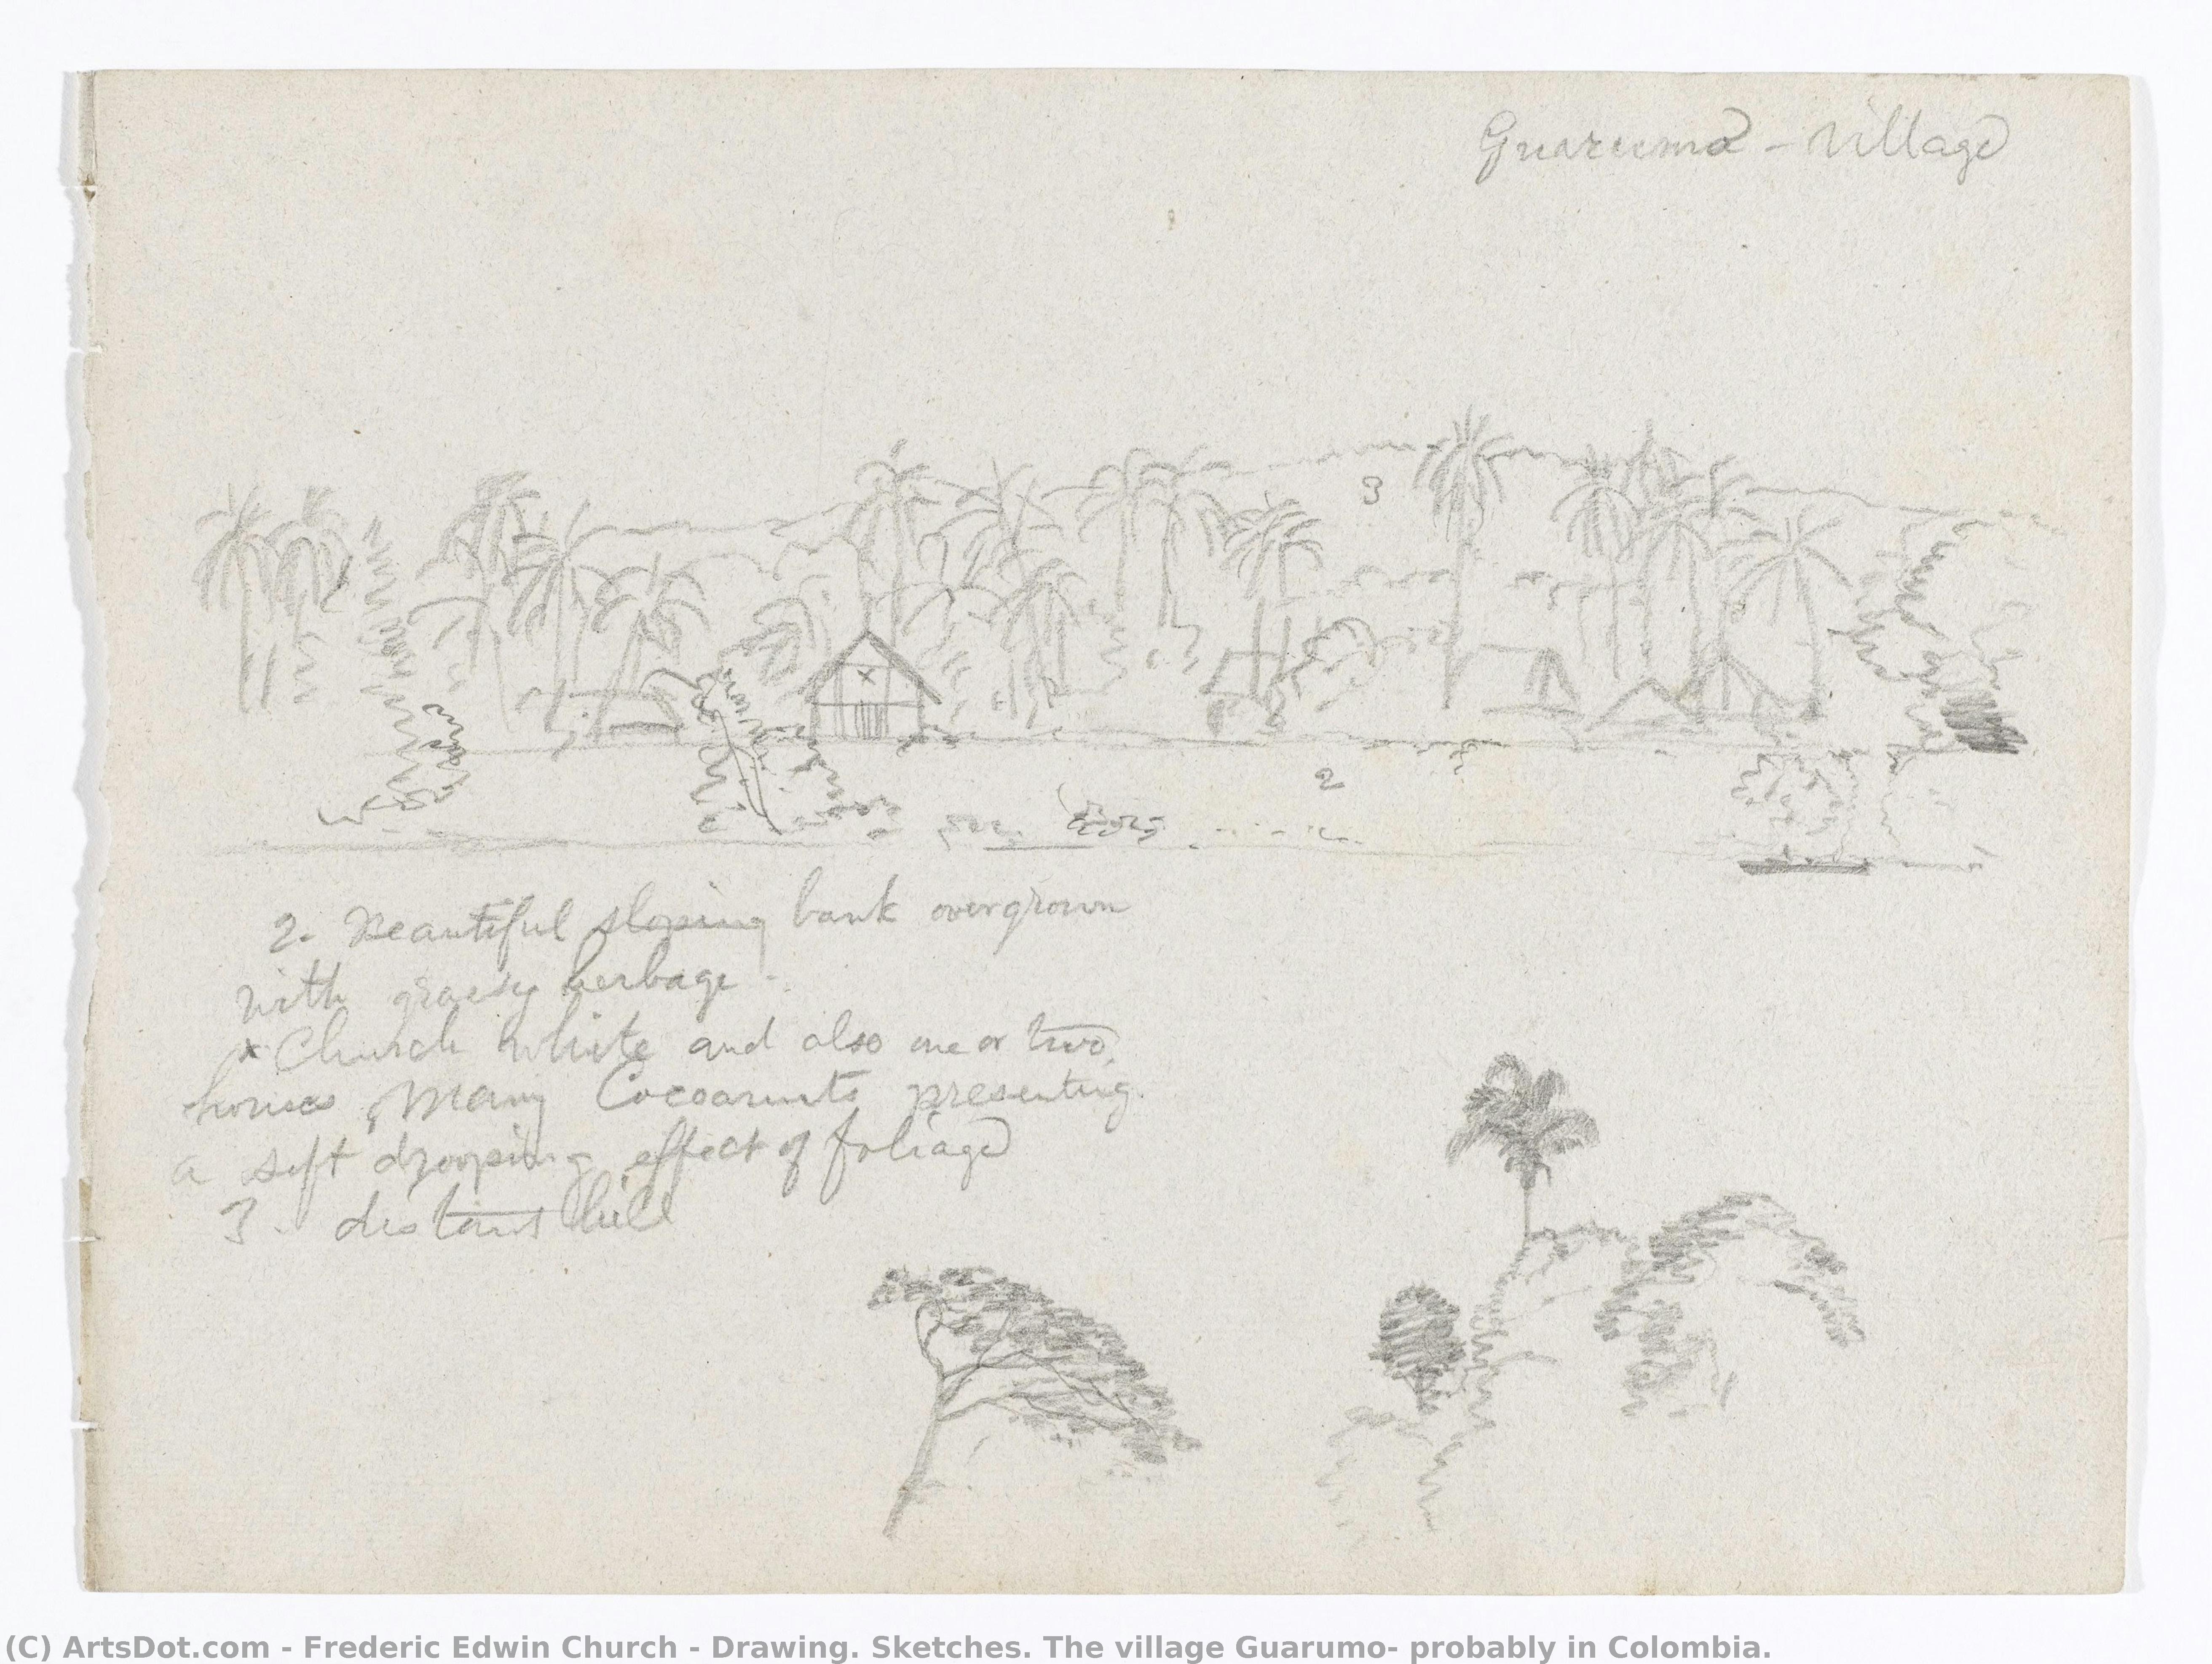 Guarumo - Village
3
x
2
2. Beautiful sloping bank overgrown
with grassy herbage.
x Church white and also one or two
houses, Many Cocoanuts presenting
a soft drooping effect of foliage
3. distant hill
(C) ArtsDot.com - Frederic Edwin Church - Drawing. Sketches. The village Guarumo- probably in Colombia.